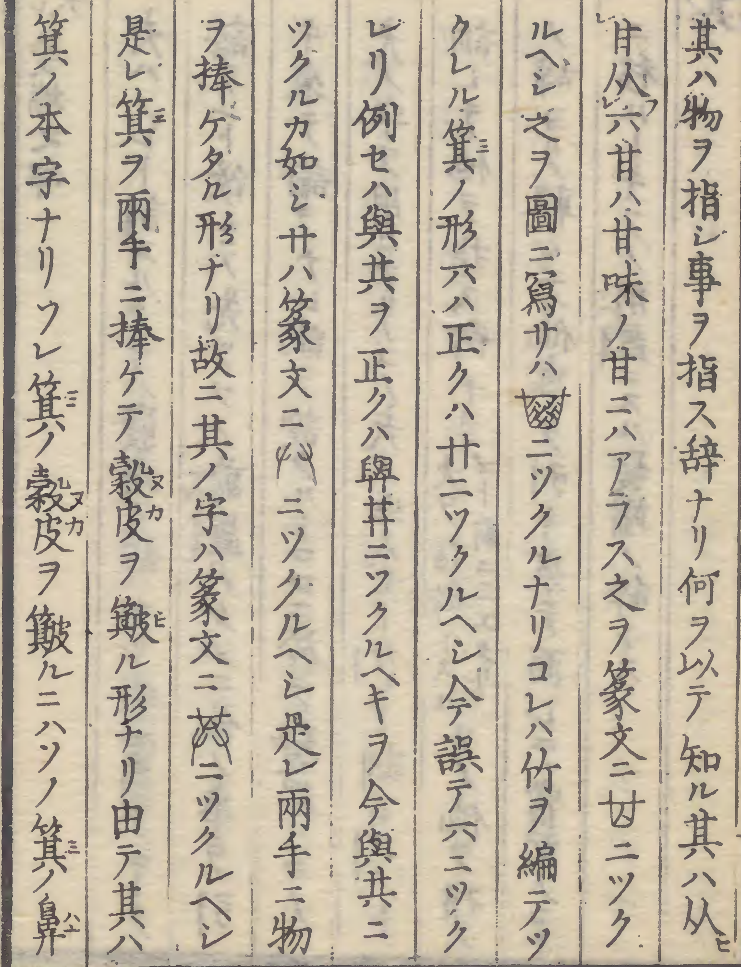 其ハ物ヲ指シ事ヲ指ス辞ナリ何ヲ以テ知ル其ハ从ヒ
甘从フ六甘ハ甘味ノ甘ニハアラス之ヲ篆文ニ
ニツクルヘシ之ヲ圖ニ寫サハ ニツクルナリコレハ竹ヲ編テツ
クレル箕ノ形六ハ正クハ廾ニツクルヘシ今誤テ六ニツク
レリ例セハ與其ヲ正クハ ニツクルヘキヲ今與其ニ
ツクルカ如シ廾ハ篆文ニ ニツクルヘシ是レ兩手ニ物
ヲ捧ケタル形ナリ故ニ其ノ字ハ篆文ニ ニツクルヘシ
是レ箕ヲ兩手ニ捧ケテ穀皮ヲ簸ル形ナリ由テ其ハ
箕ノ本字ナリソレ箕ノ穀皮ヲ簸ルニハソノ箕ノ鼻